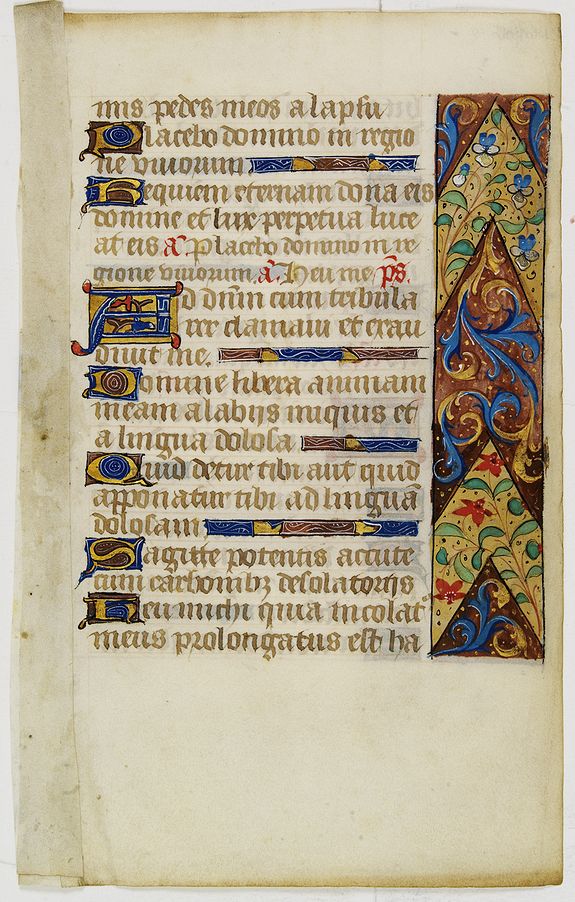 mis pedes meos a lapsu
Placebo domino in regio
ne vivorum
Requiem eternam dona eis
domine et lux perpetua luce
at eis a. Placebo domino in re
gione vivorum. a. Heu me ps.
Ad dnm cum tribula
rer clamavi et exau
divit me.
Domine libera animam
meam a labiis iniquis et
a lingua dolosa
Quid detur tibi aut quid
apponatur tibi ad linguā
dolosam
Sagitte potentis accute
cum carbonibz desolatoriis
Heu michi quia incolat
meus prolongatus est ha